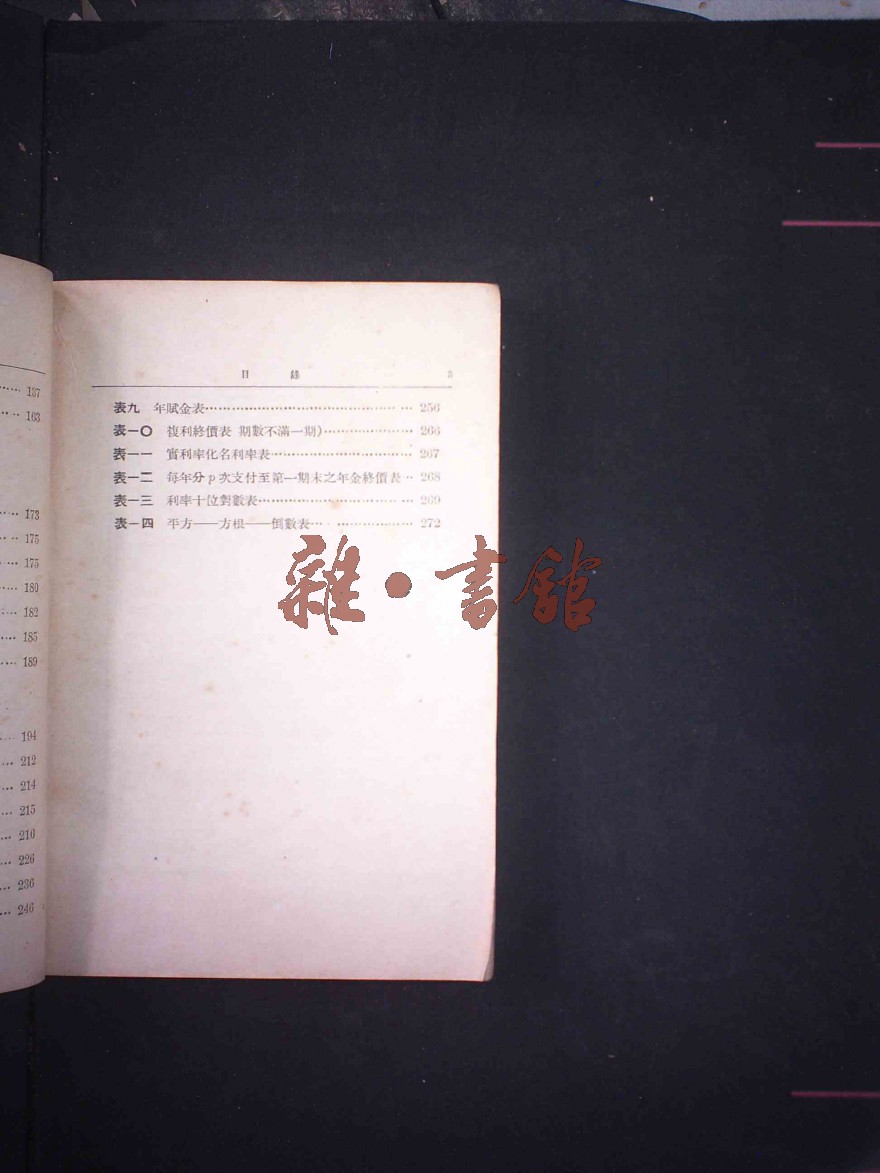 137
163
173
175
175
180
182
185
189
194
212
214
215
216
226
236
246
目錄 3
表九 年賦金表 256
表一〇 複利終價表 期數不滿一期) 266
表一一 實利率化名利率表 267
表一二 每年分p次支付至第一期末之年金終價表 268
表一三 利率十位對數表 269
表一四 平方——方根——倒數表 272
雜·書館